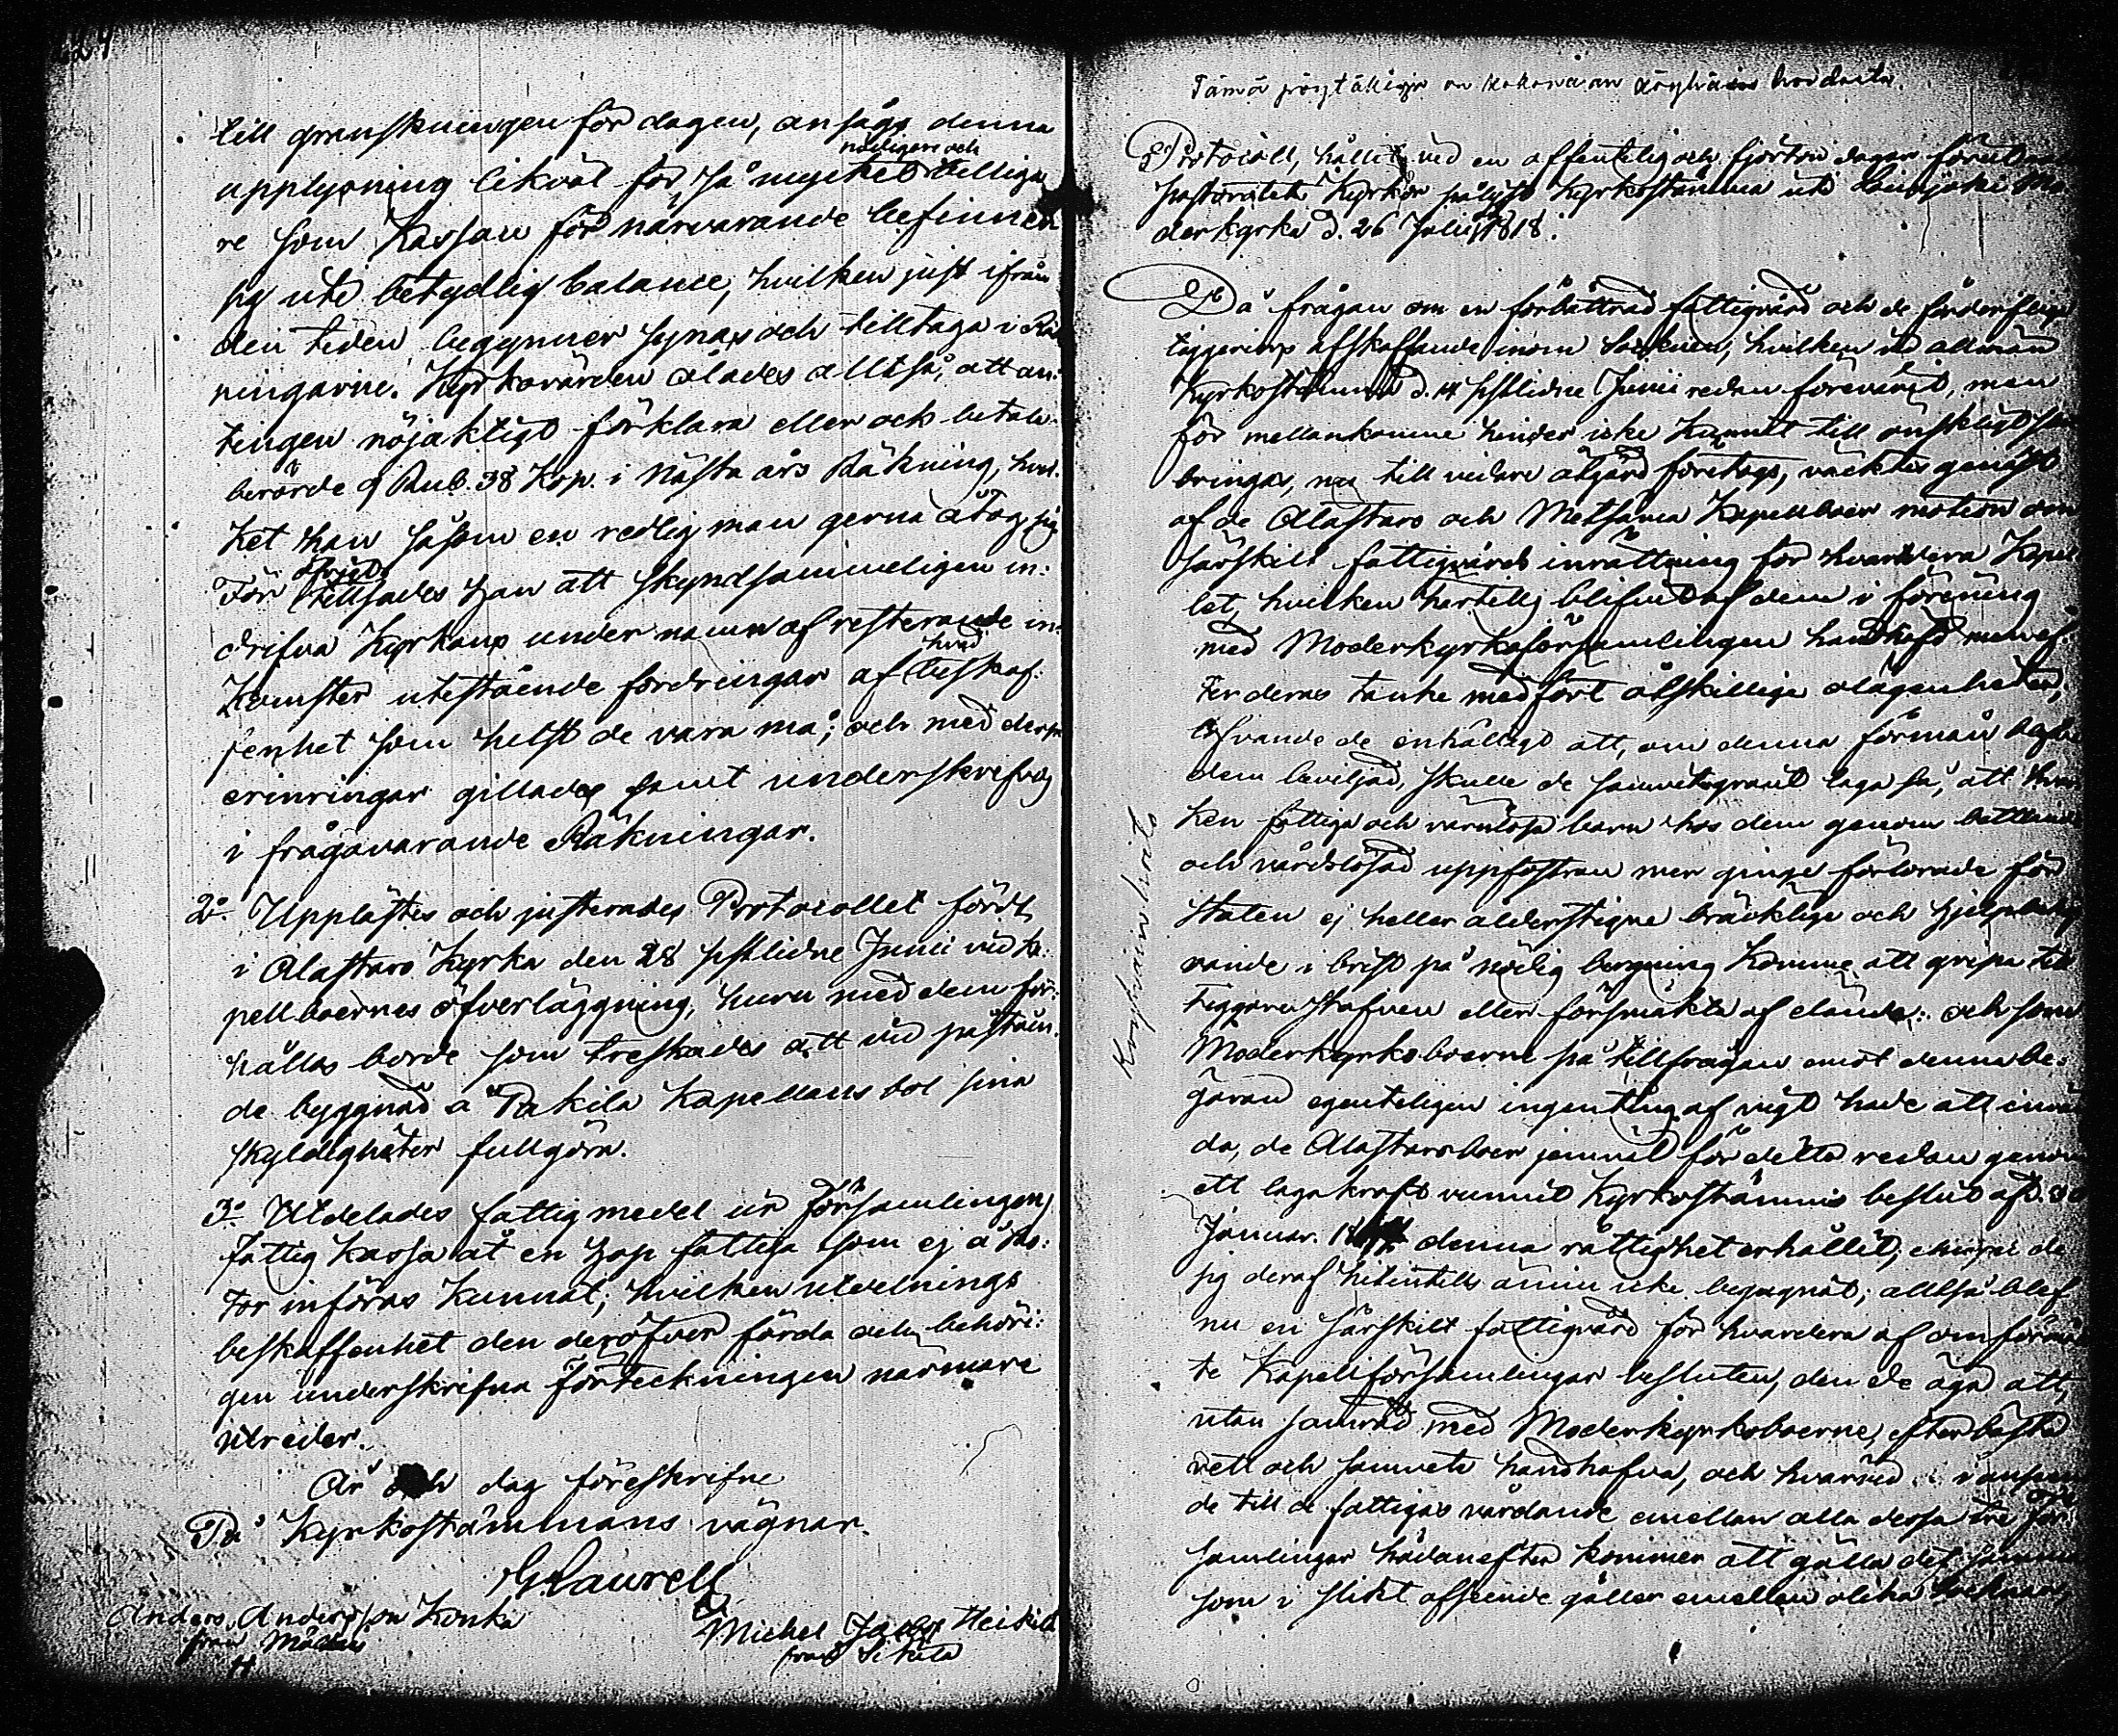 till granskningen för dagen, ansågs denna
nödigare och
upplysning likväl för så mycket billiga
re som Kassan för närvarande befinner
sig uti betydlig balance, hvilken just ifrån
den tiden begynner synas och tilltaga i Räk
ningarne. Kyrkovärden ålades alltså, att an:
tingen nöjaktigt förklara eller ock betala
berörde 9 Rub. 38 Kop. i nästa års Räkning, hvil:
ket han såsom en redlig man gerna åtog sig
För tillsades han att skyndsammeligen in:
drifva Kyrkans under namn af resterande in:
hvad
komster utestående fordringar af beskaf:
fenhet som helst de vara må; och med dessa
erinringar gillades samt underskrefvos
i frågavarande Räkningar.
2o Upplästes och justerades Protocollet fördt
i Alastaro Kyrka den 28 sistlidne Junii vid Ka:
pellboernes öfverläggning, huru med dem för:
hållas borde som treskades att vid påståen:
de byggnad å Pakila Kapellans bol sina
skyldigheter fullgöra.
3o Utdelades fattigmedel ur Församlingens
fattig Kassa åt en hop fattiga som ej å Ro:
tor införas kunnat; hvilken utdelnings
beskaffenhet den deröfver förda och behöri:
gen underskrifna Förteckningen närmare
utreder.
År och dag föreskrifne
På Kyrkostämmans vägnar.
G. Laurell
Anders Andersson Konka
från Mälläis
Michel Jacobs Heikkilä
från Sikilä
Tämä pöytäkirja on kokonaan köyhäin hoidosta.
Protocoll, hållit vid en offentelig och fjorton dagar förut
Pastoratets Kyrkor pålyst Kyrkostämma uti Loimjoki Mo
derkyrka d. 26 Julii 1818.
Då frågan om en förbättrad fattigvård och de förderflige
tiggeriers afskaffande inom Socknen, hvilken vid allmän
Kyrkostämma d. 14 sistlidne Junii redan förevarit, men
för mellankomne hinder icke kunnit till önskligt slut
bringas, nu till vidare åtgärd företogs, väcktes genast
af de Alastaro och Metsämaa Kapellboer motion om
särskilt fattigvårds inrättning för hvardera Kapel
let, hvilken hertills blifvit af dem i förening
med Moderkyrkoförsamlingen handhafd men ef:
ter deras tanke medfört åtskillige olägenheter,
lofvande de enhälligt att, om denna förmån blefve
dem beviljad, skulle de samvetsgrant laga så, att hvar
ken fattige och värnlöse barn hos dem genom bettlande
och vårdslösad uppfostran mer ginge förlorade för
Staten ej heller ålderstigne bräcklige och hjelpbehöf
vande i brist på nödig bergning komme att gripa till
tiggarestafven eller försmäkta af elände: och som
Moderkyrkoboerne på tillfrågan emot denna be:
gäran egenteligen ingenting af vigt hade att invän
da, de Alastaroboer jemväl för detta redan genom
ett laga kraft vunnit Kyrkostämmo beslut af d. 30
Januar. denna rättighet erhållit, ehuru de
sig deraf hitintills ännu icke begagnat; alltså blef
nu en särskilt fattigvård för hvardera af omförmäl
te Kapellförsamlingar besluten, den de äga att,
utan samråd med Moderkyrkoboerne, efter bästa
vett och samvete handhafva, och hvarvid i anseen
de till de fattigas vårdande emellan alla dessa tre För:
samlingar hädanefter kommer att gälla det samma
som i slikt afseende gäller emellan olika Socknar,
Köyhäin hoito